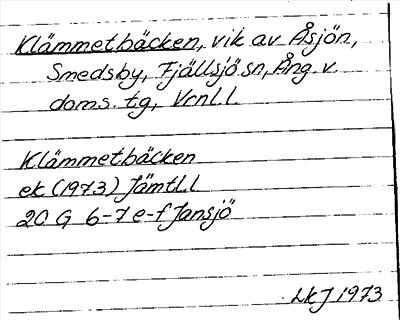 Klämmetbäcken, vik av Åsjön,
Smedsby, Fjällsjö sn, Ång. v.
doms. tg, Vrnl. l.
Klämmetbäcken
ek (1973) Jämtl. l
20 G 6-7 e-f Jansjö
LkJ 1973